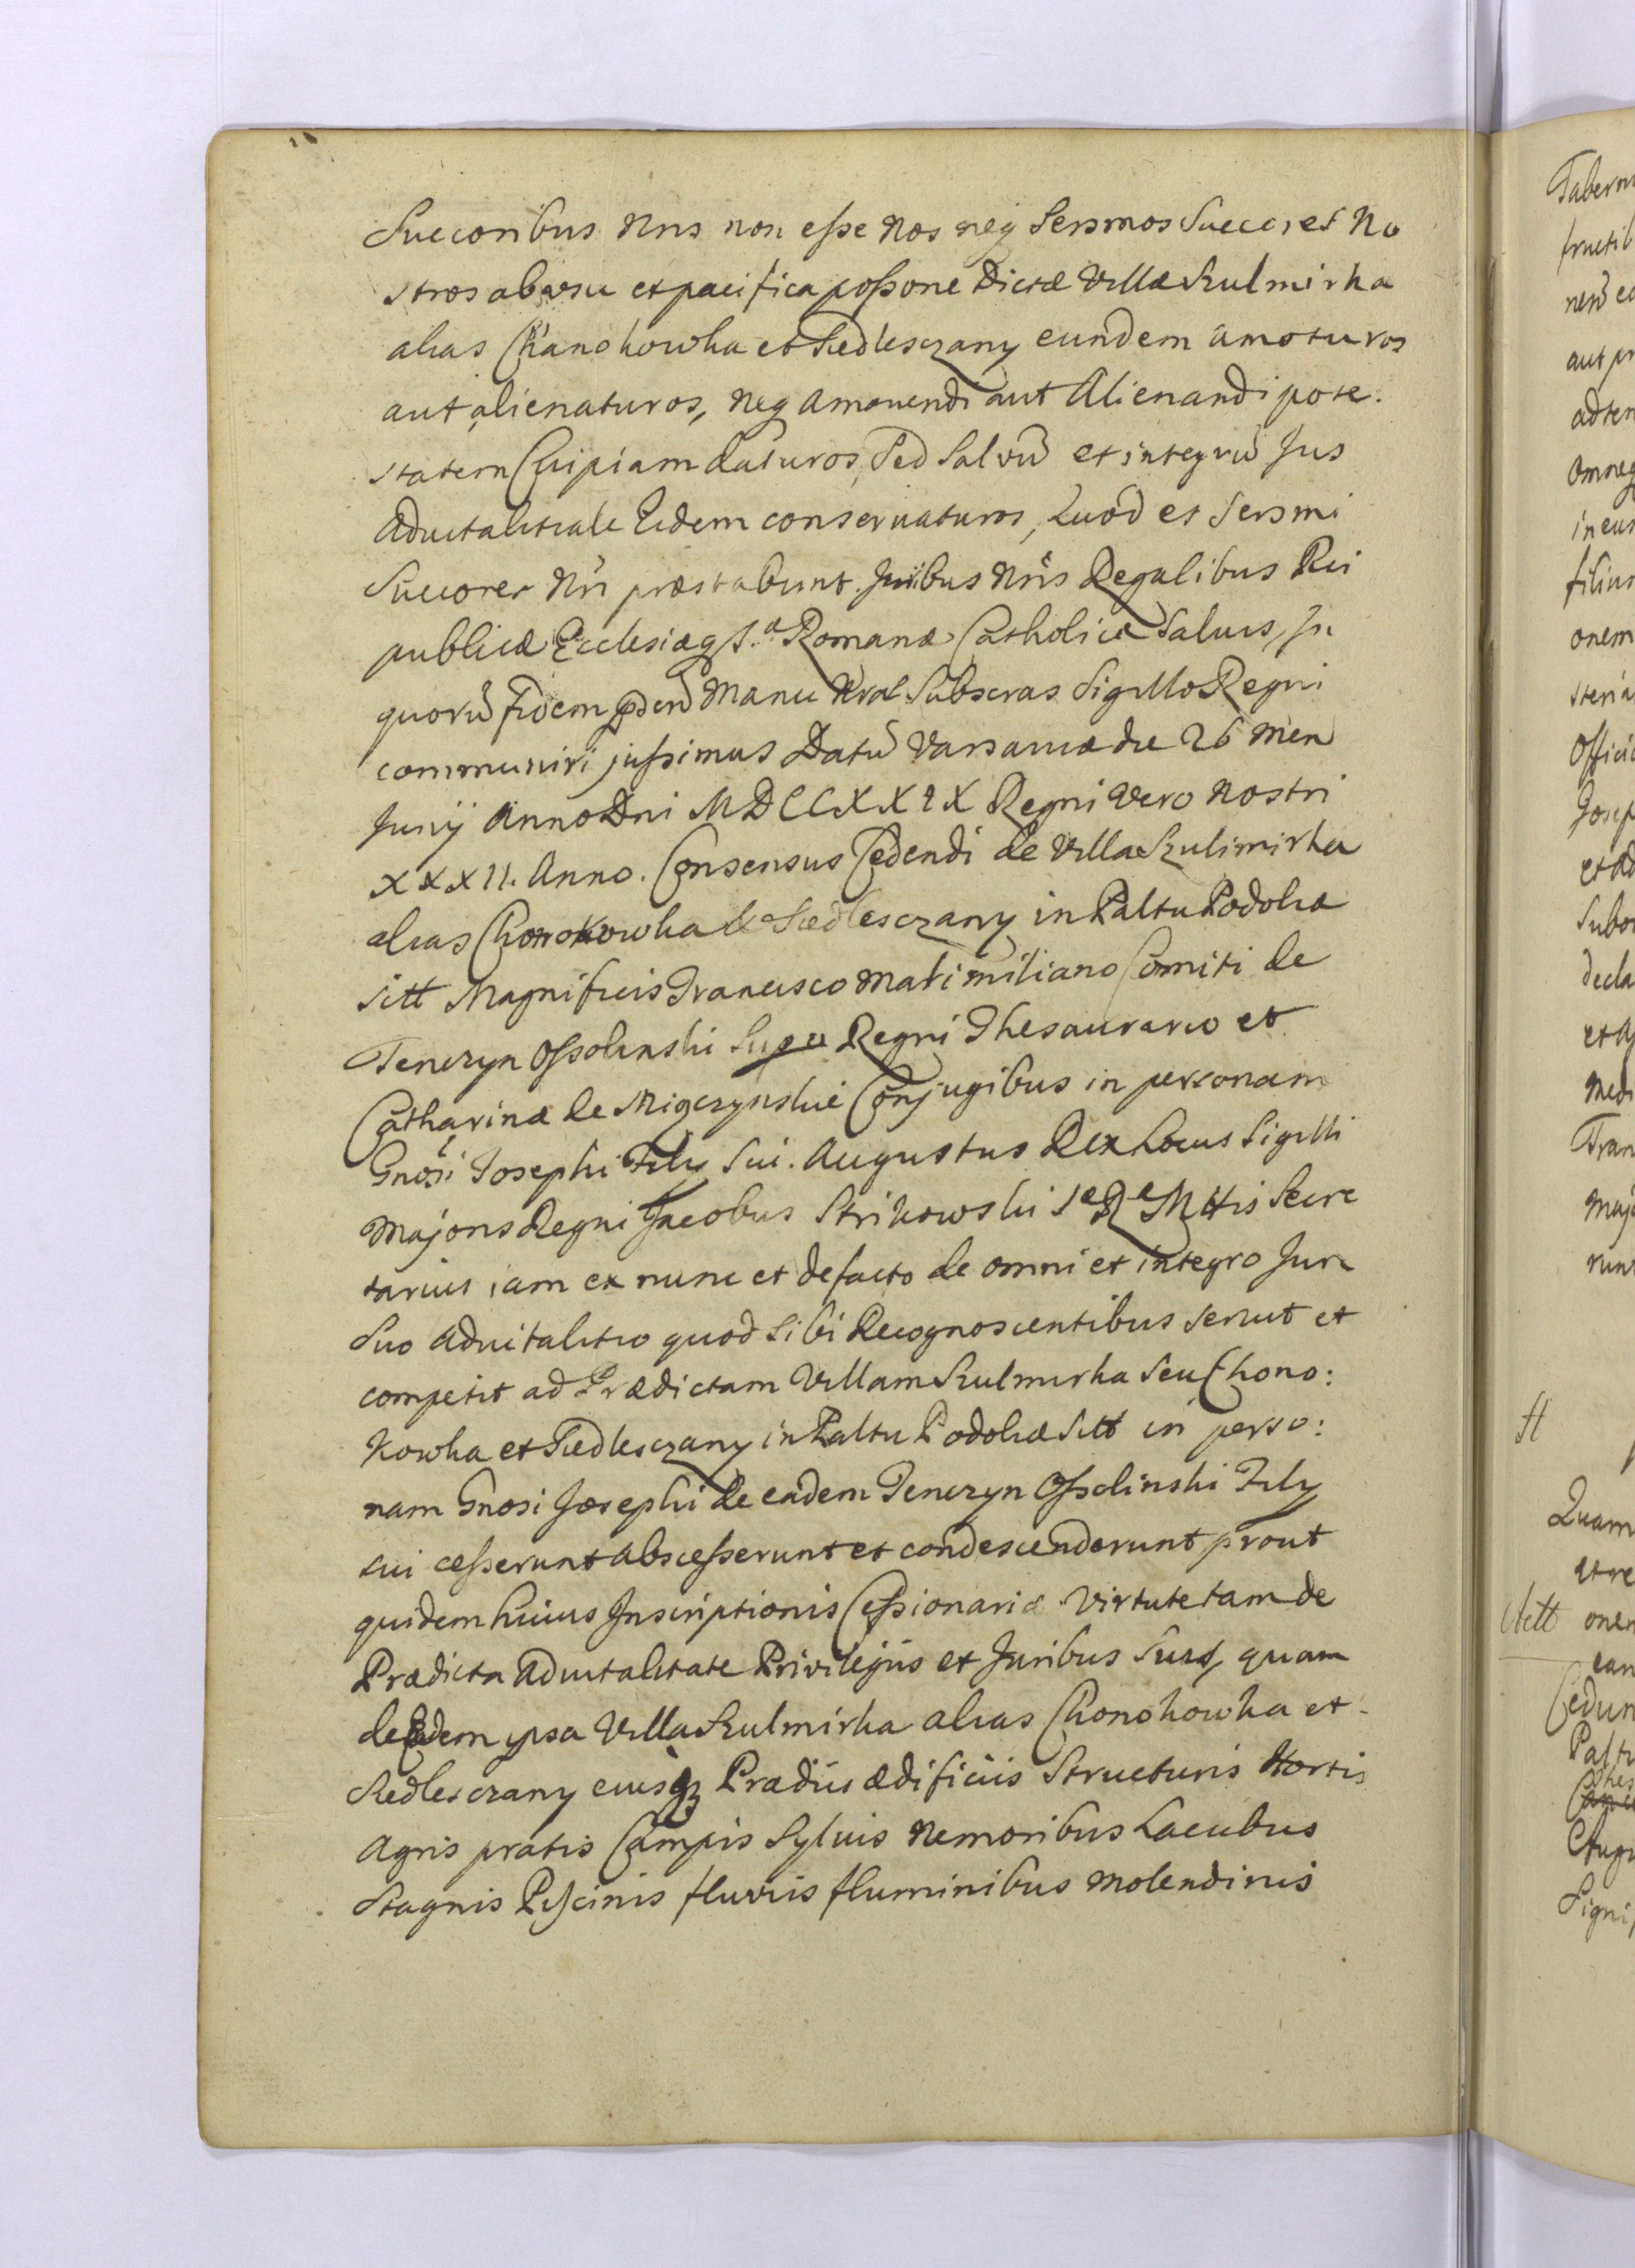 Succoribus Nris non esse Nos neq Sersmos Succores No
stros ab usu et pacifica possone Dictæ Villæ Szulmirka
alias Chanokowka et Siedlesczany eundem amoturos
aut alienaturos, neq amovendi aut Alienandi pote:
statem Cuipiam daturos, Sed Salvũ et integrũ Jus
advitalitiale Eidem conservaturos, Quod et Sersmi
Succores Nri præstabunt. Juribus Nris Regalibus Rei
publicæ Ecclesiæq S.æ Romanæ Catholicæ Salvis, In
quorũ Fidem pndem Manu Nra Subscras Sigillo Regni
communiri jussimus Datũ Varsaviæ die 26 Men
Junij Anno Dni MDCCXXIX Regni Vero Nostri
XXXII. Anno. Consensus Cedendi de Villa Szulimirka
alias Chonokowka & Siedlesczany in Paltu Podoliæ
sitt Magnificis Francisco Maximiliano Comiti de
Tenczyn Ossolinski Supo Regni Thesaurario et
Catharinæ de Miączynskie Conjugibus in personam
Gnosi Josephi Filij Sui. Augustus Rex Locus Sigilli
Majoris Regni Jacobus Strikowski Sæ Ræ Mttis Secre
tarius iam ex nunc et de facto de omni et integro Jure
Suo advitalitio quod Sibi Recognoscentibus servit et
competit ad Prædictam Villam Szulmirka Seu Chono:
kowka et Siedlesczany in Paltu Podoliæ Sitt in perso:
nam Gnosi Josephi de eadem Tenczyn Ossolinski Filij
sui cesserunt abscesserunt et condescenderunt prout
quidem huius Inscriptionis Cessionariæ Virtute tam de
Prædicta Advitalitate Privilegiis et Juribus Suis, quam
de Eadem ipsa Villa Szulmirka alias Chonokowka et
Siedlesczany eiusq Prædiis ædificiis Structuris Hortis
Agris pratis Campis Sylvis Nemoribus Lacubus
Stagnis Piscinis fluviis fluminibus molendinis